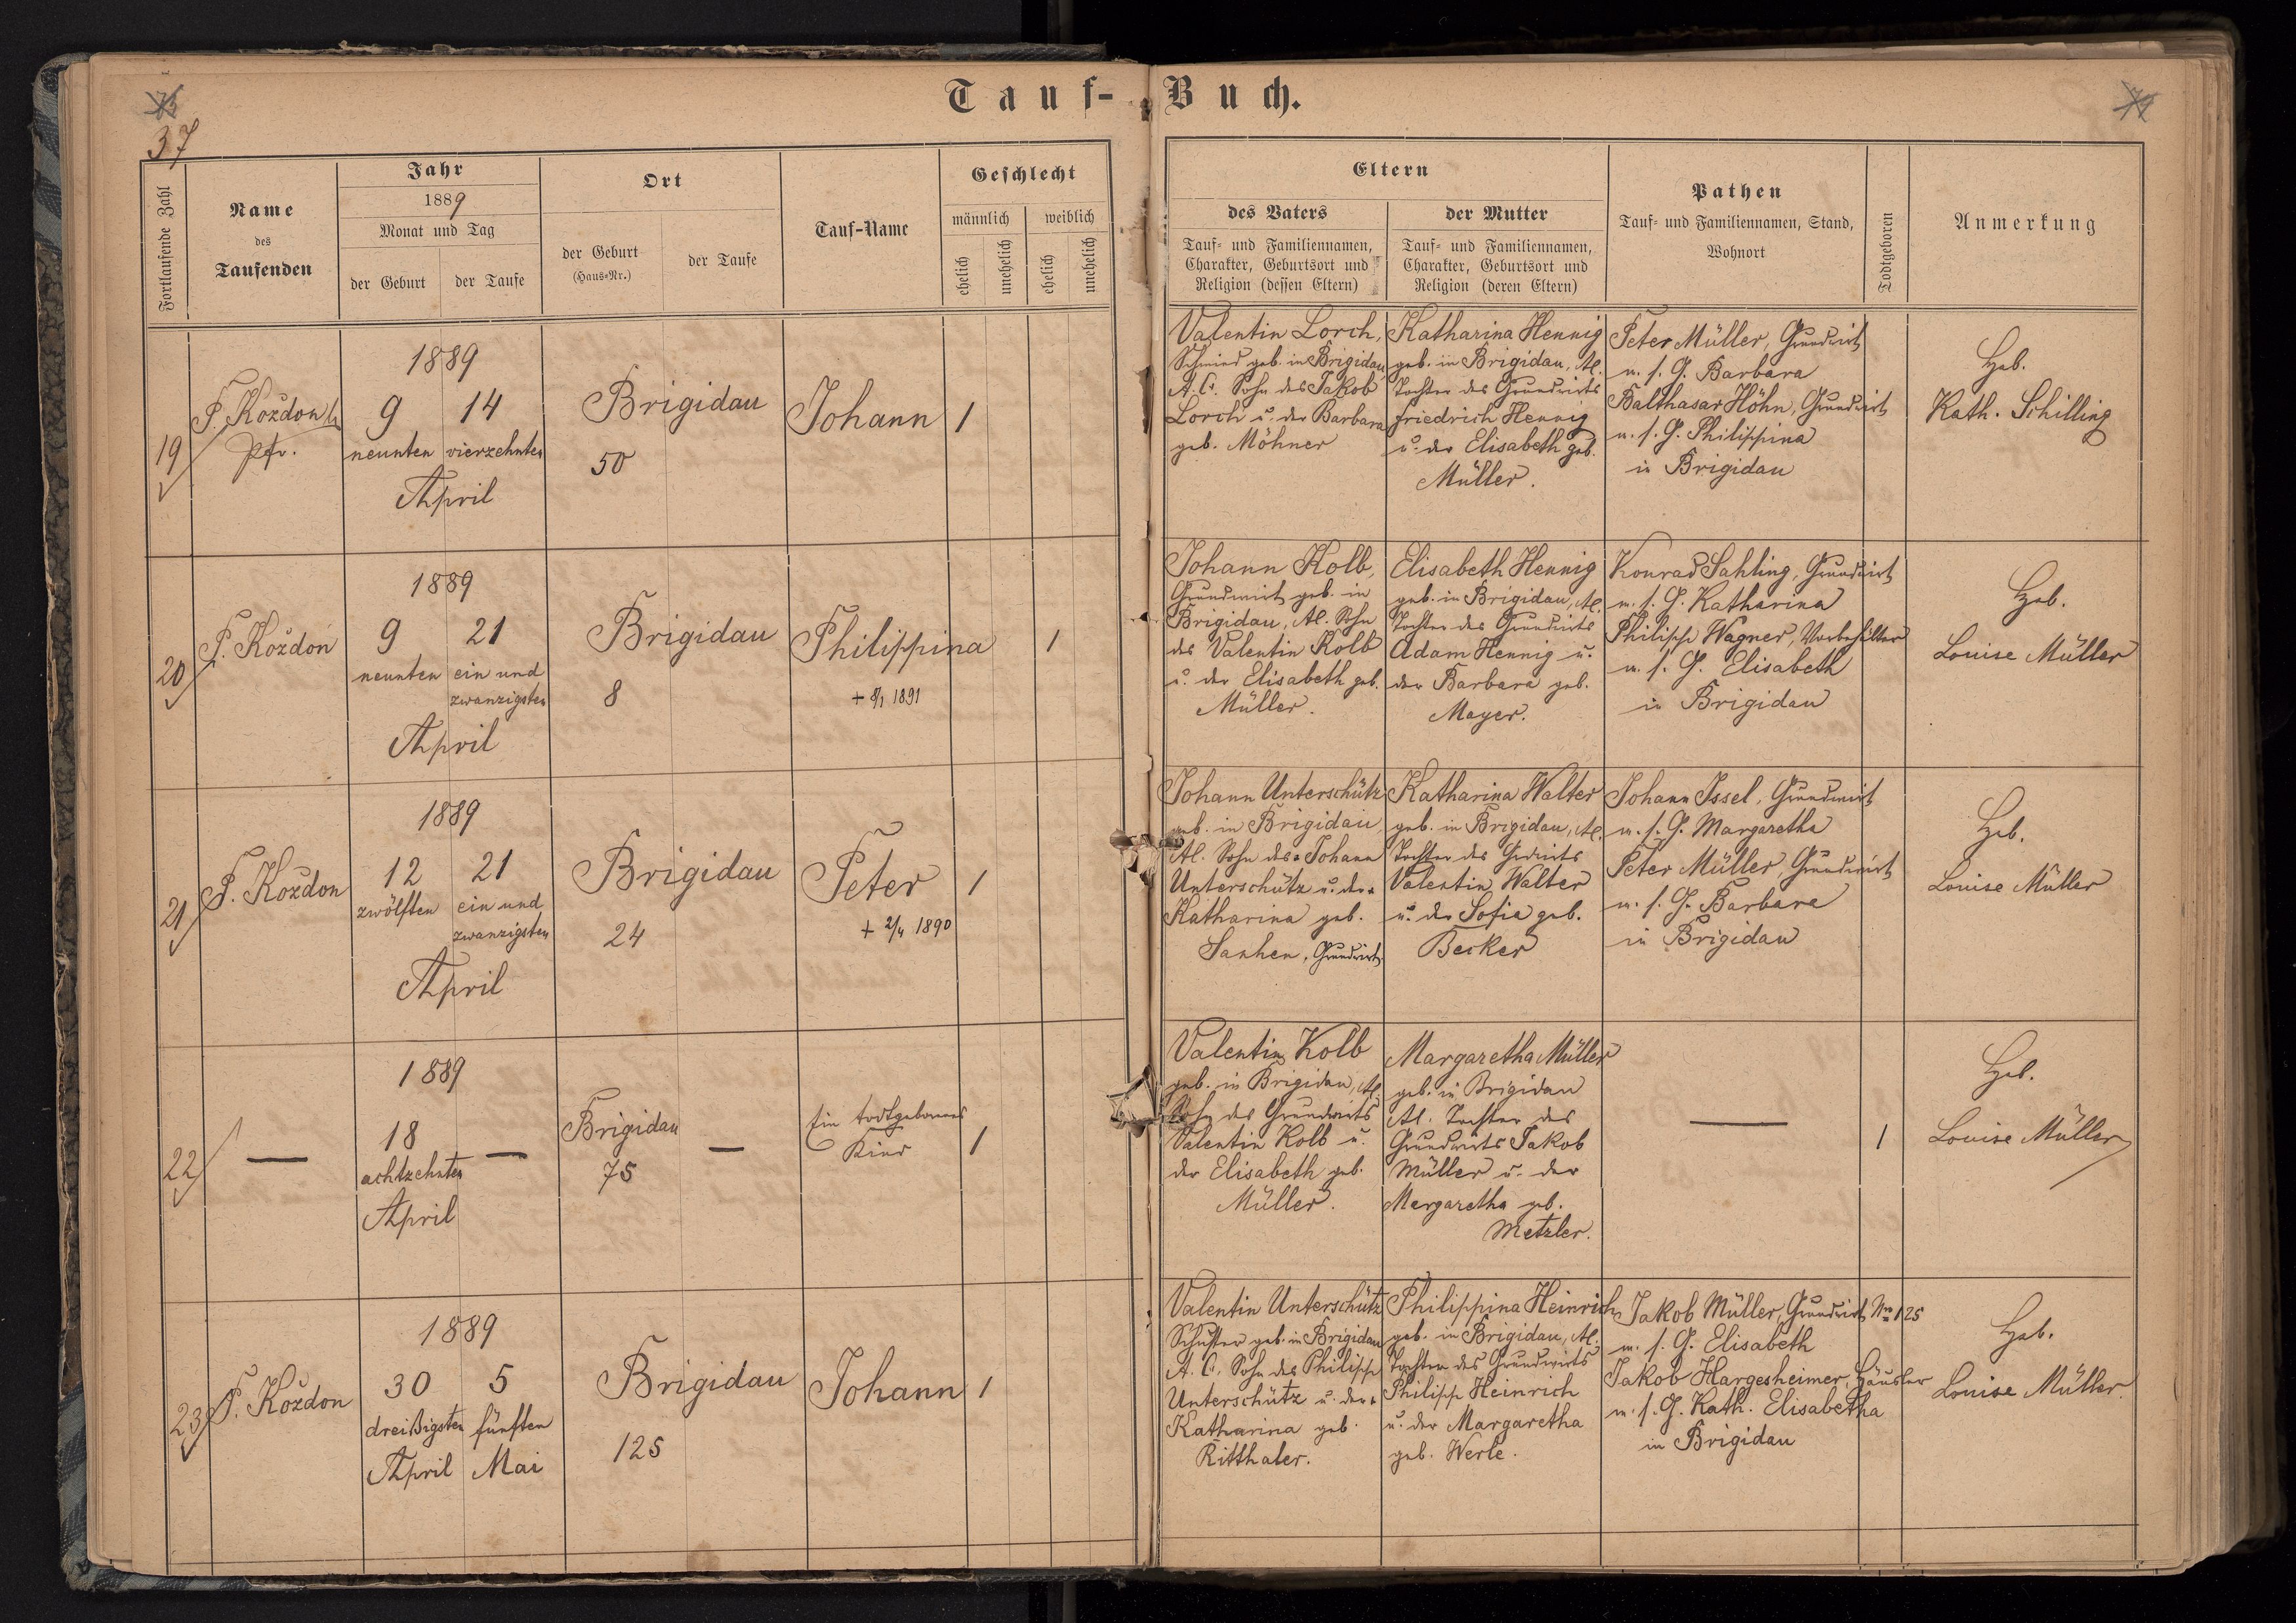 Tauf-Buch.
73
37
74
Fortlaufende Zahl
Name
des
Taufenden
Jahr
1889
Monat und Tag
der Geburt
der Taufe
Ort
der Geburt
(Haus-Nr.)
der Taufe
Tauf-Name
Geschlecht
männlich
weiblich
ehelich
unehelich
ehelich
unehelich
Eltern
des Vaters
Tauf- und Familiennamen,
Charakter, Geburtsort und
Religion (dessen Eltern)
der Mutter
Tauf- und Familiennamen,
Charakter, Geburtsort und
Religion (deren Eltern)
Pathen
Tauf- und Familiennamen, Stand,
Wohnort
Todtgeboren
Anmerkung
19
F. Koždon
Pfr.
1889
9
neunten
14
vierzehnten
April
Brigidau
50
Johann
1
Valentin Lorch,
Schmied geb. in Brigidau,
A. C. Sohn des Jakob
Lorch u. der Barbara
geb. Möhner
Katharina Hennig
geb. in Brigidau, Al.
Tochter des Grundwirts
Friedrich Hennig
u. der Elisabeth geb.
Müller.
Peter Müller, Grundwirt
u. s. G. Barbara
Balthasar Höhn, Grundwirt
u. s. G. Philippina
in Brigidau
Heb.
Kath. Schilling
20
F. Koždon
1889
9
neunten
21
ein und
zwanzigsten
April
Brigidau
8
Philippina
+ 8/1 1891
1
Johann Kolb,
Grundwirt geb. in
Brigidau, Al. Sohn
des Valentin Kolb
u. der Elisabeth geb.
Müller.
Elisabeth Hennig
geb. in Brigidau, Al.
Tochter des Grundwirts
Adam Hennig u.
der Barbara geb.
Mayer.
Konrad Sahling, Grundwirt
u. s. G. Katharina
Philipp Wagner, Vorbehälter
u. s. G. Elisabeth
in Brigidau
Heb.
Louise Müller
21
F. Koždon
1889
12
zwölften
21
ein und
zwanzigsten
April
Brigidau
24
Peter
+ 2/4 1890
1
Johann Unterschütz
geb. in Brigidau,
Al. Sohn des Johann
Unterschütz u. der
Katharina geb.
Grundwirt
Katharina Walter
geb. in Brigidau, Al.
Tochter des Grdwirts
Valentin Walter
u. der Sofia geb.
Becker
Johann Issel, Grundwirt
u. s. G. Margaretha
Peter Müller, Grundwirt
u. s. G. Barbara
in Brigidau
Heb.
Louise Müller
22
—
1889
18
achtzehnten
April
—
Brigidau
75
—
Ein todtgebornes
Kind
1
Valentin Kolb
geb. in Brigidau, Al.
Sohn des Grundwirts
Valentin Kolb u.
der Elisabeth geb.
Müller.
Margaretha Müller
geb. in Brigidau
Al. Tochter des
Grundwirts Jakob
Müller u. der
Margaretha geb.
Metzler.
—
1
Heb.
Louise Müller
23
F. Koždon
1889
30
dreißigsten
April
5
fünften
Mai
Brigidau
125
Johann
1
Valentin Unterschütz
Schuster geb. in Brigidau
A. C. Sohn des Philipp
Unterschütz u. der
Katharina geb.
Ritthaler.
Philippina Heinrich
geb. in Brigidau, Al.
Tochter des Grundwirts
Philipp Heinrich
u. der Margaretha
geb. Werle.
Jakob Müller, Grundwirt Nro 125
u. s. G. Elisabeth
Jakob Hargesheimer, Häusler
u. s. G. Kath. Elisabetha
in Brigidau
Heb.
Louise Müller.